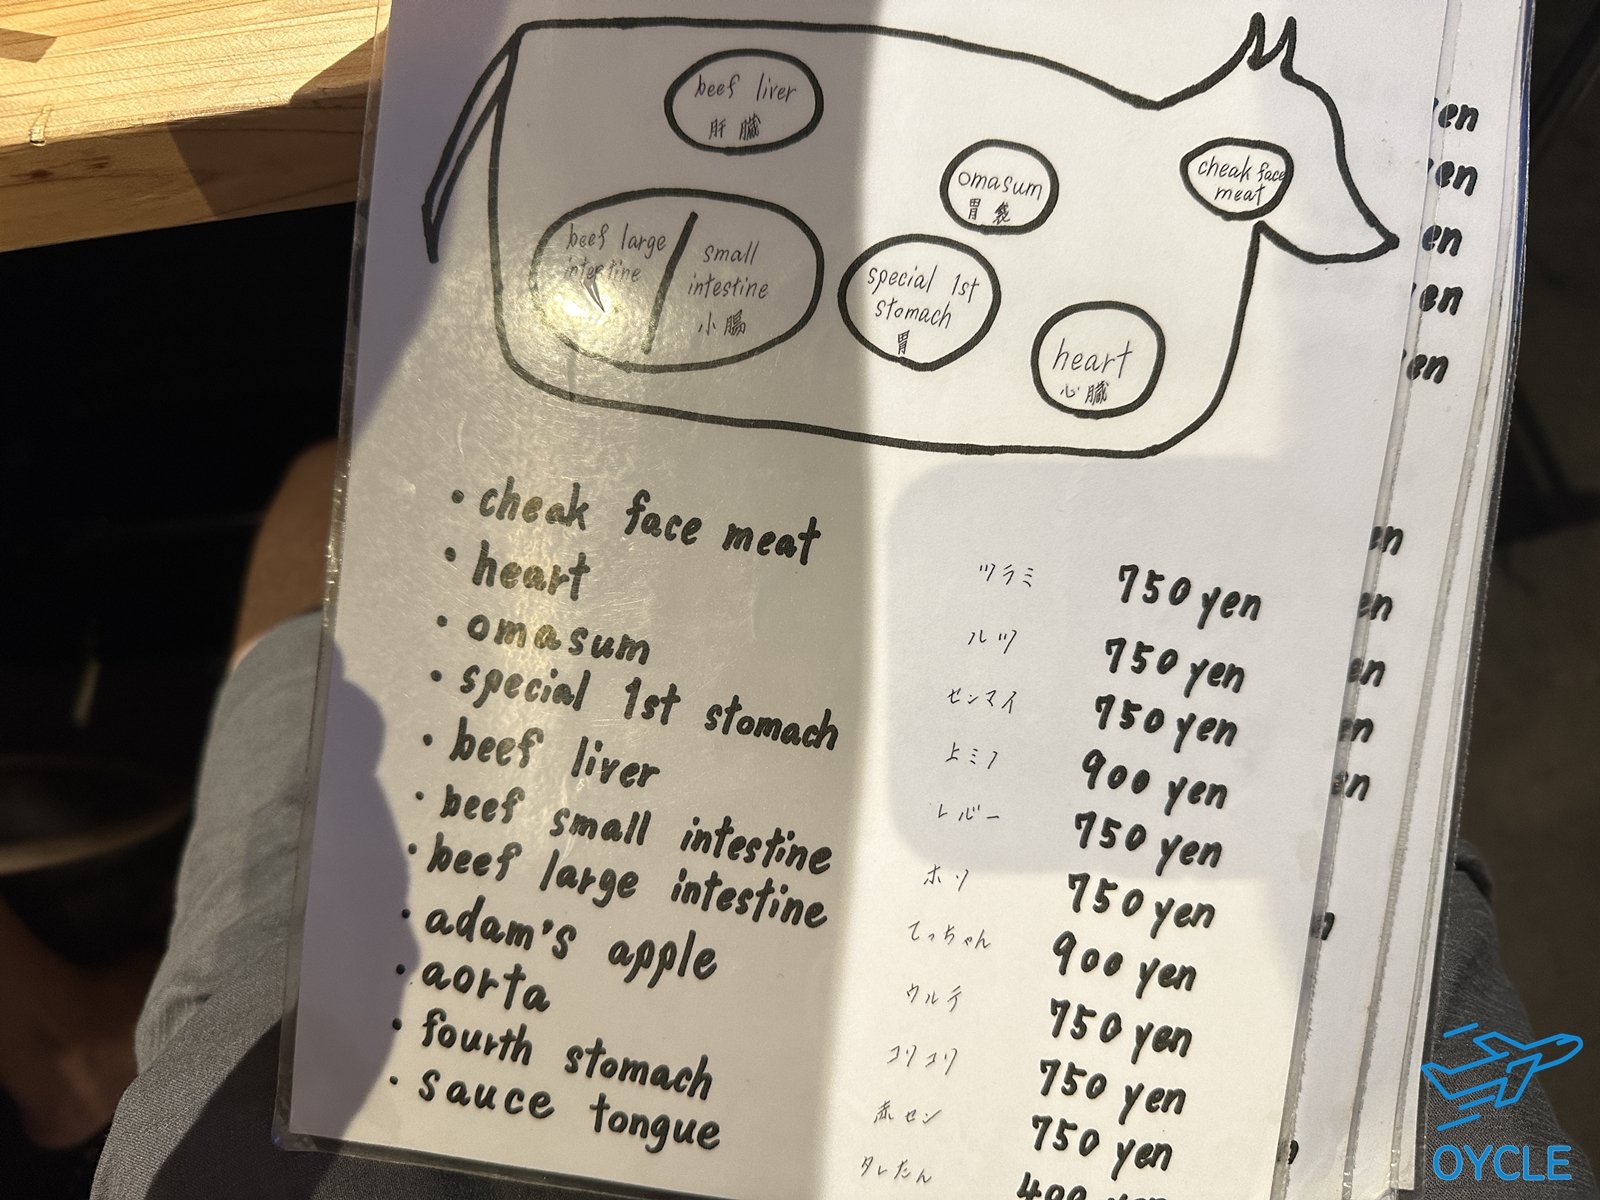 beef liver
肝臓
omasum
胃袋
cheak face
meat
beef large
intestine
small
intestine
小腸
special 1st
stomach
胃
heart
心臓
・cheak face meat ツラミ 750 yen
・heart ハツ 750 yen
・omasum センマイ 750 yen
・special 1st stomach 上ミノ 900 yen
・beef liver レバー 750 yen
・beef small intestine ホソ 750 yen
・beef large intestine てっちゃん 900 yen
・adam's apple ウルテ 750 yen
・aorta コリコリ 750 yen
・fourth stomach 赤セン 750 yen
・sauce tongue タレたん 400 yen
OYCLE